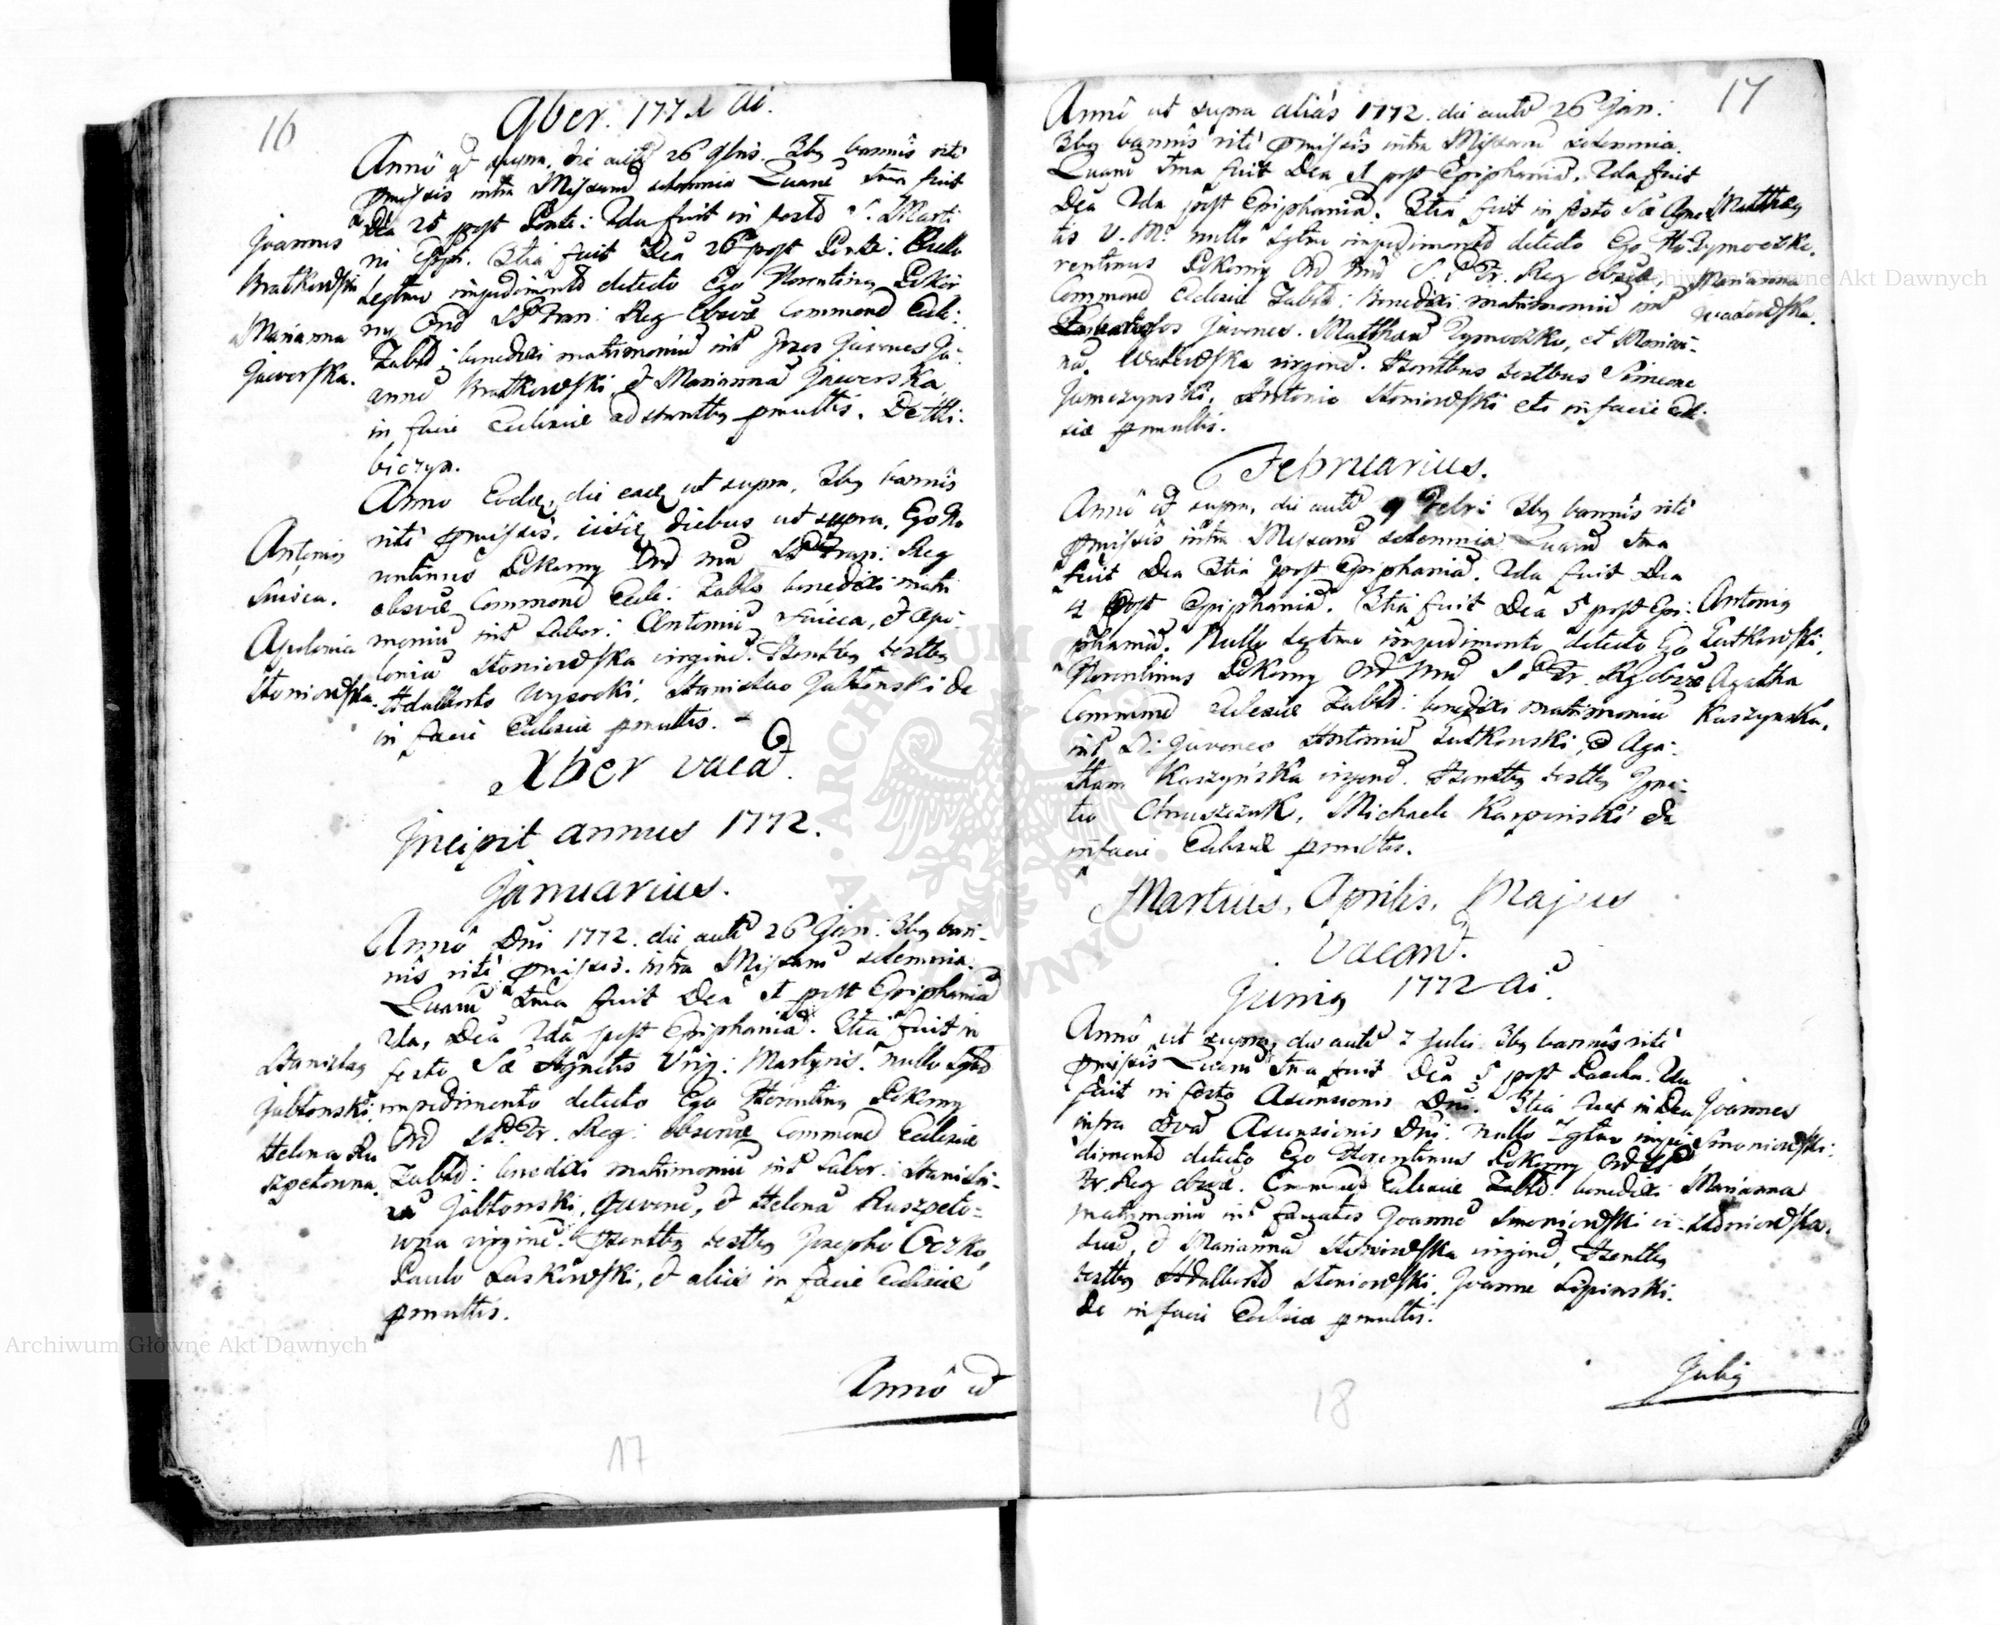 16
9ber. 1771 Ai.
Annô ut supra, die autē 26 9bris. 3bq bannis ritè
pmissis intra Missarū solemnia Quarū 1ma fuit
Dca 25 post Pente: 2da fuit in festo S. Marti
ni Eppi. 3tia fuit Dca 26 post Pente: Nullo
legtmo impedimento detecto Ego Florentinq Pokor
nq Ord SP Fran: Reg Obsvæ Commend Eccle:
Zabld: benedixi matrimoniū intr Gnros Juvenes Jo:
annē Bratkowski, et Mariannā Jaworska
in facie Ecclesiæ adstantbq pmultis. De Hli:
biczyn.
Joannes
Bratkowski
Marianna
Jaworska.
Anno Eodē, die eadē ut supra, 3bq bannis
ritè pmissis, iisdē diebus ut supra, Ego Flo
rentinus Pokorny Ord Min SP Fran: Reg
obsvæ Commend Eccle: Zabld benedixi matri
moniū intr Labor: Antoniū Suieca, et Apo
loniā Stoniowska virginē. Pntbq testbq
Adalberto Wysocki, Stanislao Jabłonski &c
in facie Ecclesiæ pmultis.
Antonius
Suieca.
Apolonia
Stoniowska.
Xber vacat.
Incipit annus 1772.
Januarius.
Annô Dni 1772. die autē 26 Jan: 3bq ban-
nis ritè pmissis. intra Missarū solemnia.
Quarū 1ma fuit Dca 1 post Epiphaniā
2da, Dca 2da post Epiphaniā. 3tia fuit in
festo Sæ Agnetis Virg: Martyris. nullo Lgtmo
impedimento detecto Ego Florentinq Pokorny
Ord SP. Fr. Reg: Observæ Commend Ecclesiæ
Zabld: benedixi matrimoniū intr Labor: Stanisla-
ū Jabłonski, Juvenē, et Helenā Ruszpeto=
wna virginē. Pntbq testbq Josepho Gozko,
Paulo Laskowski, et aliis in facie Ecclesiæ
pmultis.
Stanislaq
Jabłonski.
Helena Ru
szpetowna.
Annô ut
17
17
Annô ut supra aliàs 1772. die autē 26 Jan:
3bq bannis ritè pmissis intra Missarū solemnia.
Quarū 1ma fuit Dca 1 post Epiphaniā. 2da fuit
Dca 2da post Epiphaniā. 3tia fuit in festo Sæ Agne
tis V. M. nullo Lgtmo impedimento detecto Ego Flo-
rentinus Pokorny Ord Min S. P. Fr. Reg obsvæ,
Commend Ecclesiæ Zabld: Benedixi matrimoniū intr
Juvenes. Matthæū Rymoszko, et Marian-
nā Watowska virginē. Pntbus testbus Simeone
Jamczynski, Antonio Stoniowski etc in facie Eccle
siæ pmultis.
Matthæq
Rymoszko.
Marianna
Watowska.
Februarius.
Annô ut supra, die autē 9 Febr: 3bq bannis ritè
pmissis intra Missarū solemnia Quarū 1ma
fuit Dca 3tia post Epiphaniā. 2da fuit Dca
4 post Epiphaniā. 3tia fuit Dca 5 post Epi:
phaniā. Nullo legtmo impedimento detecto Ego
Florentinus Pokorny Ord Min S P Fr. Rg obsvæ
Commend Ecclesiæ Zabld: benedixi matrimoniū
intr Juvenes Antoniū Rutkowski, et Aga-
tham Kaszyńska virginē. Pntbq testbq Igna-
tio Chruszczuk, Michaele Karpinski &c
in facie Ecclesiæ pmultis.
Antoniq
Rutkowski.
Agatha
Kaszynska.
Martius, Aprilis, Majus
vacant.
Juniq 1772 Ai.
Annô ut supra, die autē 7 Julii 3bq bannis ritè
pmissis Quarū 1ma fuit Dca 5 post Pascha. 2da
fuit in festo Ascensionis Dni. 3tia fuit in Dca
infra Octavā Ascensionis Dni. Nullo Lgtmo impe
dimento detecto Ego Florentinus Pokorny Ord SP
Fr. Reg obsvæ. Commend Ecclesiæ Zabld. benedixi
matrimoniū intr famatos Joannē Smoniowski vi-
duū, et Mariannā Stoniowska virginē, Pntbq
testbq Adalberto Stoniowski, Joanne Lipinski.
&c in facie Ecclesiæ pmultis.
Joannes
Smoniowski:
Marianna
Stoniowska.
Juliq
18
Archiwum Główne Akt Dawnych
Archiwum Główne Akt Dawnych